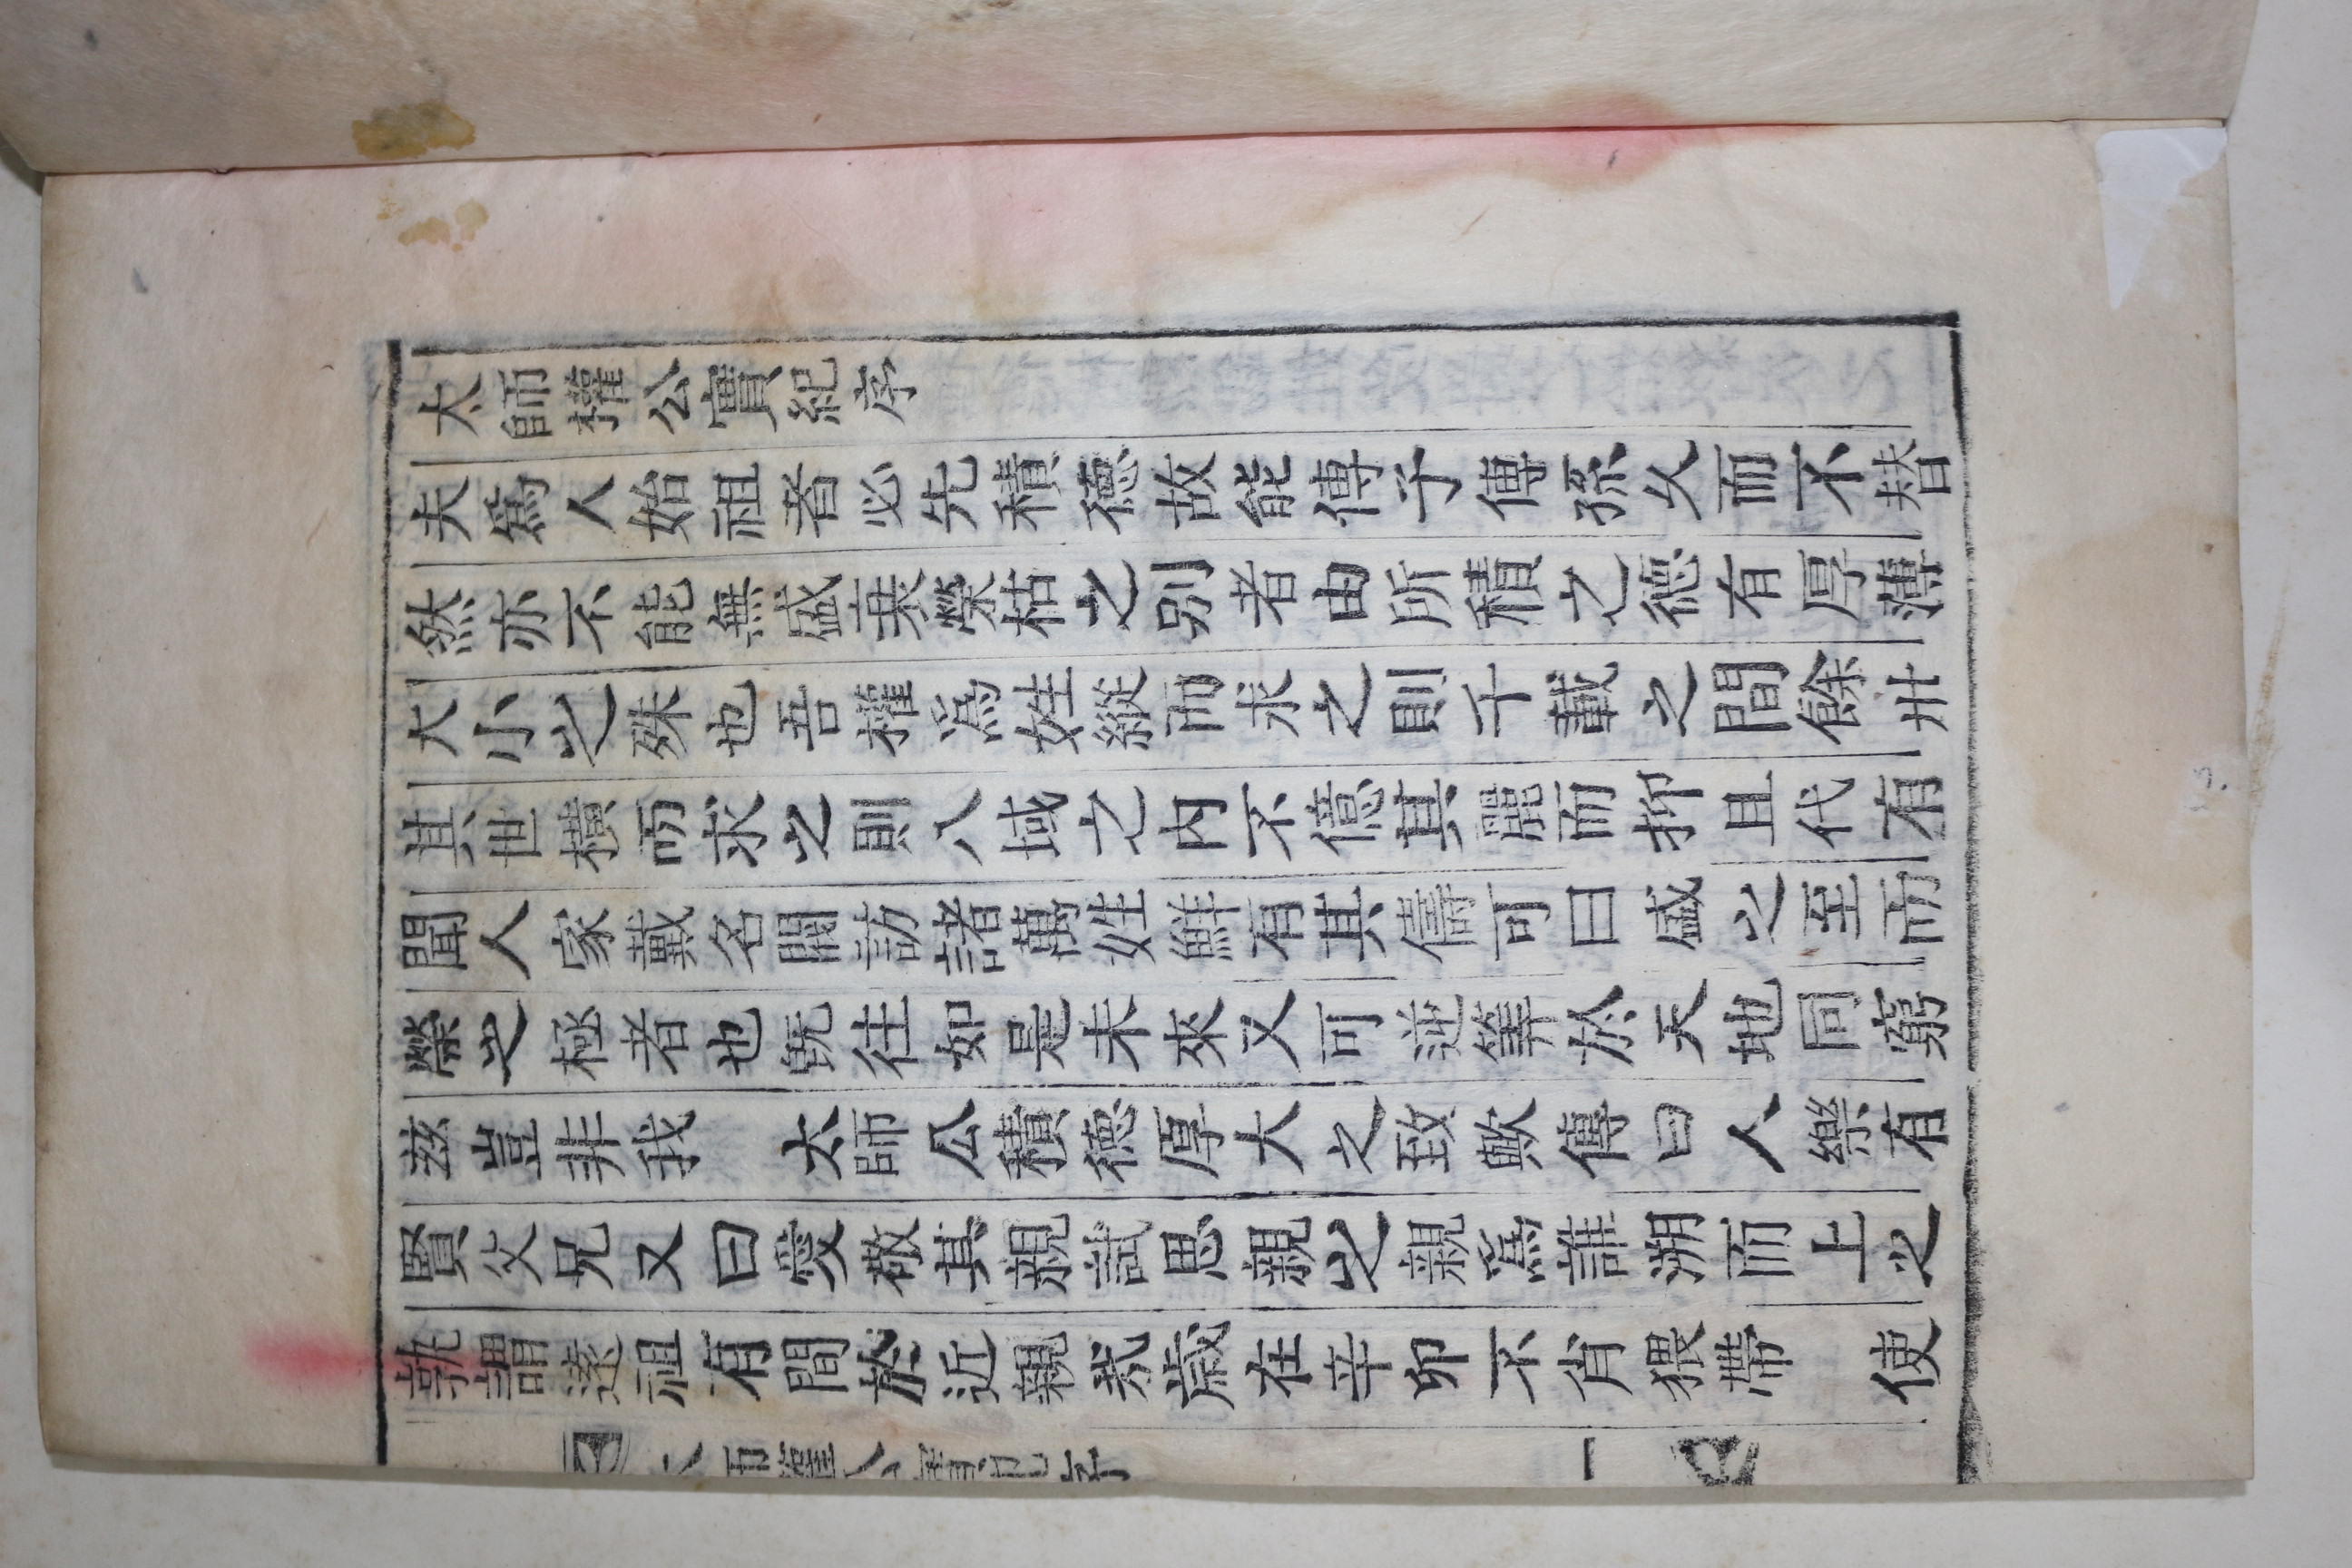 太師權公實紀序
夫爲人始祖者必先積德故能傳子傳孫久而不替
然亦不能無盛衰榮枯之别者由所積之德有厚薄
大小之殊也吾權爲姓縱而求之則千載之間餘卅
其世橫而求之則八域之內不億其麗而抑且代有
聞人家戴名閥訪諸萬姓鮮有其儔可曰盛之至而
榮之極者也旣往如是未來又可逆筭於天地同窮
玆豈非我　太師公積德厚大之致歟傳曰人樂有
賢父兄又曰愛敬其親試思親之親爲誰溯而上之
孰謂遠祖有間於近親㢤歲在辛卯不肖猥帶　使
太師權公實紀序　一